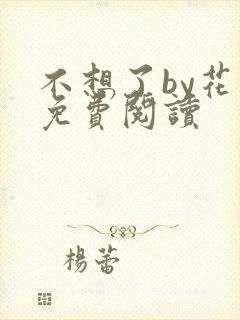 不想了by花
免費閱讀
楊蕾